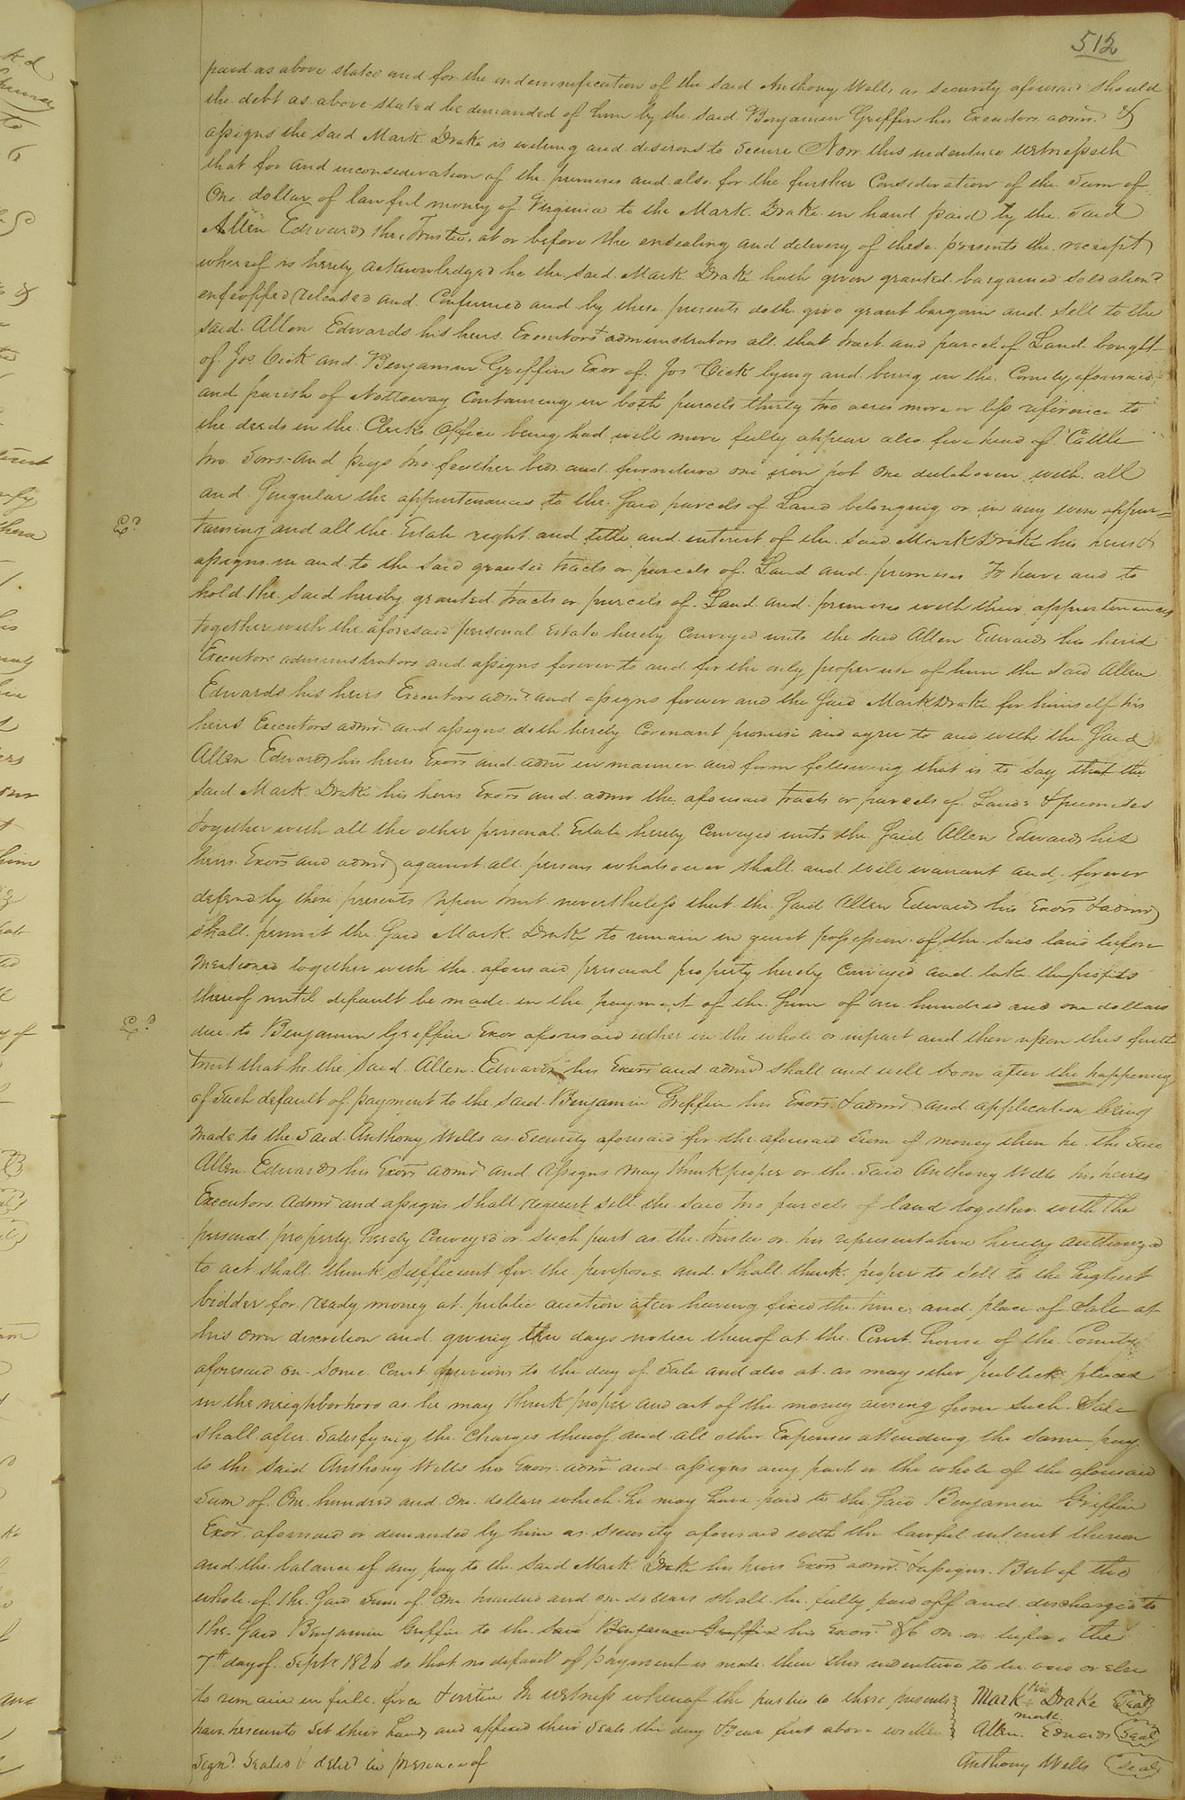 512
paid as above stated and for the indemnification of the said Anthony Wells as security aforesaid should
the debt as above stated be demanded of him by the said Benjamin Griffin his Executors admrs &
assigns the said Mark Drake is willing and desirous to secure Now this indenture witnesseth
that for and inconsideration of the premises and also for the further Consideration of the Sum of
One dollar of lawful money of Virginia to the Mark Drake in hand paid by the said
Allen Edwards the Trustee at or before the ensealing and delivery of these presents the receipt
whereof is hereby acknowledged he the said Mark Drake hath given granted bargained sold aliend
enfeoffed released and Confirmed and by these presents doth give grant bargain and sell to the
said Allen Edwards his heirs Executors & administrators all that tract and parcel of Land bought
of Jos and Benjamin Griffin Exor of Jos lying and being in the County aforesaid
and parish of Nottoway Containing in both parcels thirty two acres more or less reference to
the deeds in the Clerks Office being had will more fully appear also five head of Cattle
two Sows and pigs two feather beds and furniture one iron pot one dutch oven with all
and Singular the appurtenances to the Said parcels of Land belonging or in any wise apper=
taining and all the Estate right and title and interest of the said Mark Drake his heirs &
assigns in and to the said granted tracts or parcels of Land and premises To have and to
hold the said hereby granted tracts or parcels of Land and premises with their appurtenances
together with the aforesaid personal Estate hereby Conveyed unto the said Allen Edwards his heirs
Executors administrators and assigns forever to and for the only proper use of him the said Allen
Edwards his heirs Executors admrs and assigns forever and the Said Mark Drake for himself his
heirs Executors admrs and assigns doth hereby Covenant promise and agree to and with the Said
Allen Edwards his heirs Exors and admrs in manner and form following that is to Say that the
said Mark Drake his heirs Exors and admrs the aforesaid tracts or parcels of Lands & premises
together with all the other personal Estate hereby Conveyed unto the Said Allen Edwards his
heirs Exors and admrs against all persons whatsoever shall and will warrant and forever
defend by these presents Upon trust nevertheless that the Said Allen Edwards his Exors & admrs
shall permit the Said Mark Drake to remain in quiet possession of the said land before
mentioned together with the aforesaid personal property hereby Conveyed and take the profits
thereof until default be made in the payment of the Sum of one hundred and one dollars
due to Benjamin Griffin Exor aforesaid either in the whole or inpart and then upon this further
trust that he the Said Allen Edwards his Exors and admrs shall and will soon after the happening
of such default of payment to the said Benjamin Griffin his Exors & admrs and application being
made to the said Anthony Wells as Security aforesaid for the aforesaid Sum of money then he the said
Allen Edwards his Exors admrs and assigns may think proper or the said Anthony Wells his heirs
Executors admrs and assigns shall request sell the said two parcels of land together with the
personal property hereby Conveyed or such part as the trustee or his representative hereby authorized
to act shall think sufficient for the purpose and shall think proper to sell to the highest
bidder for ready money at public auction after having fixed the time and place of Sale at
his own discretion and giving days notice thereof at the Court house of the County
aforesaid on some Court previous to the day of Sale and also at as many other publick places
in the neighborhood as he may think proper and out of the money arising from such Sale
shall after satisfying the Charges thereof and all other Expenses attending the same pay
to the said Anthony Wells his Exors admrs and assigns any part or the whole of the aforesaid
Sum of One hundred and One dollars which he may have paid to the Said Benjamin Griffin
Exor aforesaid or demanded by him as security aforesaid with the lawful interest thereon
and the balance if any pay to the said Mark Drake his heirs Exors admrs & assigns But if the
whole of the Said Sum of One hundred and one dollars shall be fully paid off and discharged to
the Said Benjamin Griffin to the said Benjamin Griffin his Exors &c on or before the
7th day of Septr 1826 so that no default of payment is made then this indenture to be void or else
to remain in full force & virtue In witness whereof the parties to these presents Mark his Drake Seal
mark
have hereunto set their hands and affixed their seals the day & year first above written Allen Edwards Seal
Signd Sealed & delivd in presence of Anthony Wells Seal